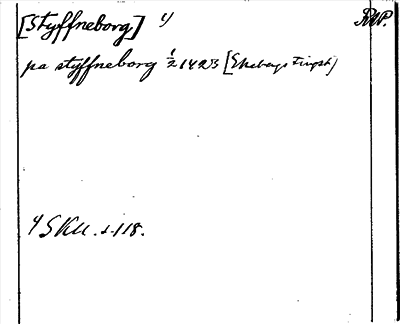 [Styffneborg] 4) RWP.
pa styffneborg 1/2 1423 [Ekebergs Tingsh)
4 SKU. 1-118.